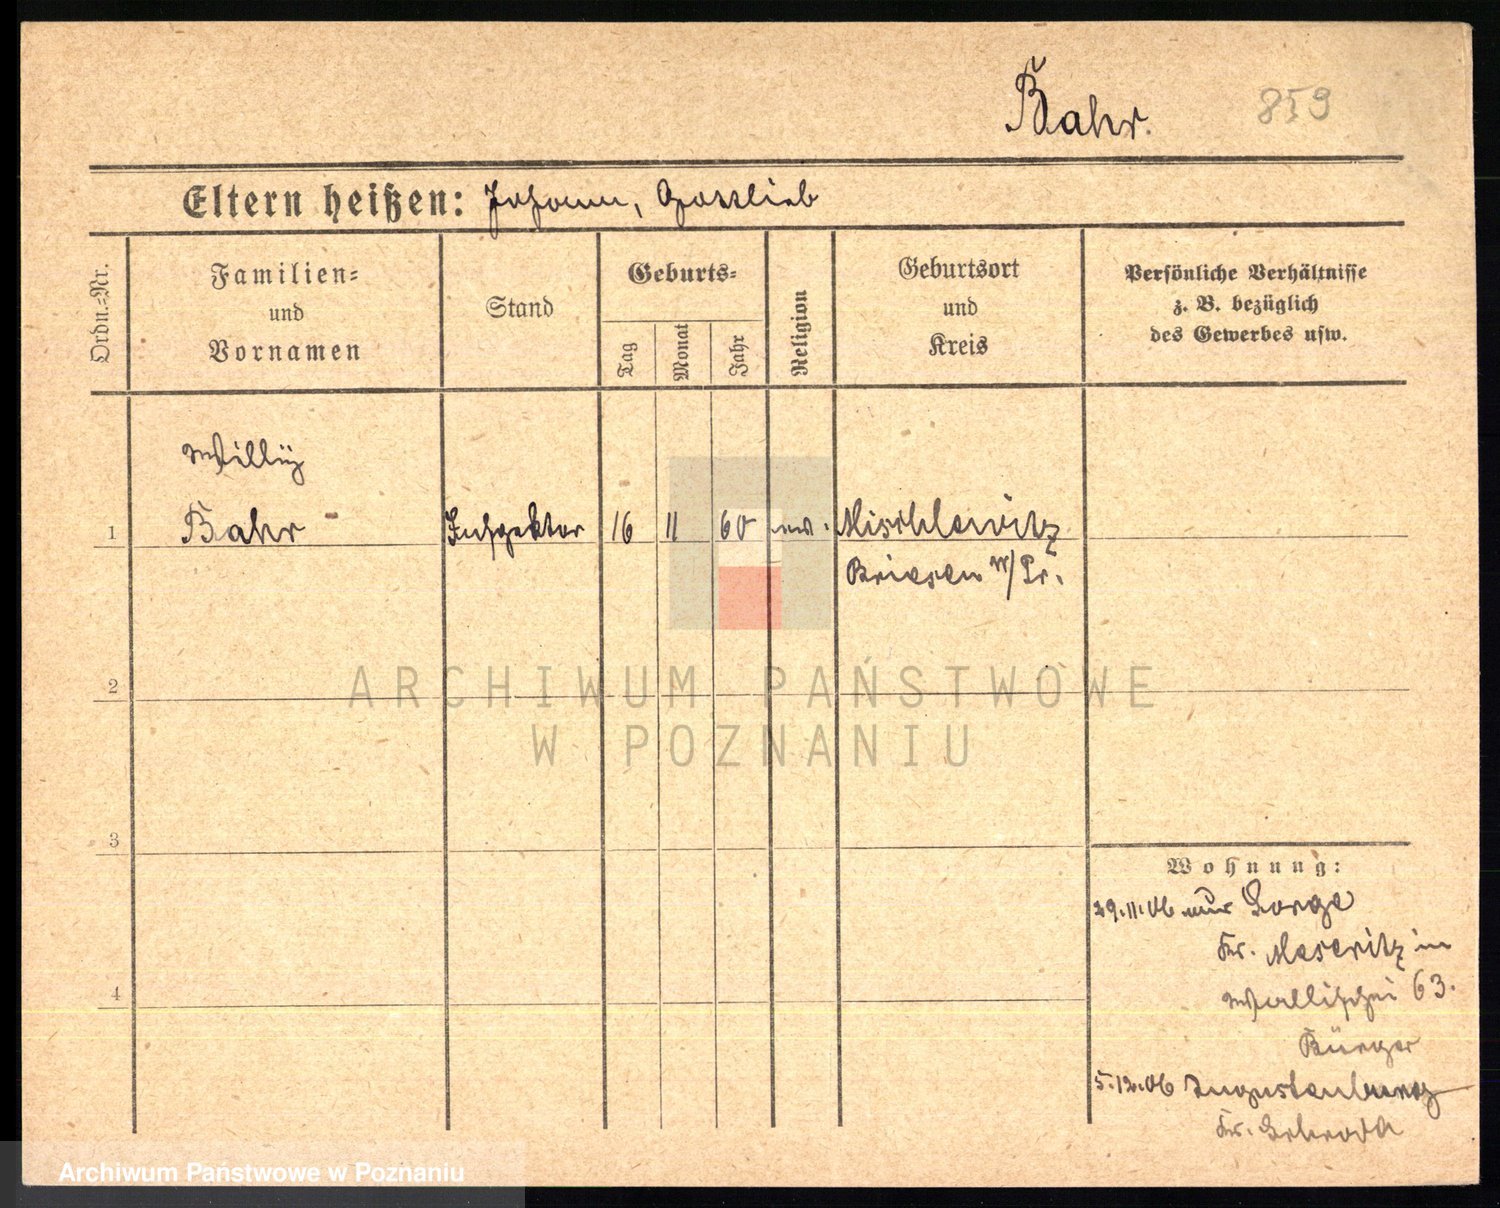 Bahr.
859
Eltern heißen: Johann, Gottlieb
Ordn.=Nr.
Familien=
und
Vornamen
Stand
Geburts=
Tag
Monat
Jahr
Religion
Geburtsort
und
Kreis
Persönliche Verhältnisse
z. B. bezüglich
des Gewerbes usw.
Willÿ
1 Bahr Inspektor 16 11 60 Mischlewitz
Briesen W/Pr.
2
3
4
Wohnung:
29.11.06 aus Sorge
Kr. Meseritz in
Wallischei 63.
Bürger
5.12.06 Augustenburg
Kr. Schroda
ARCHIWUM PAŃSTWOWE
W POZNANIU
Archiwum Państwowe w Poznaniu